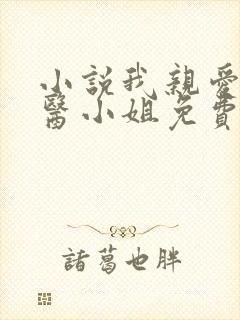 小說我親愛
醫小姐免費
諸葛也胖